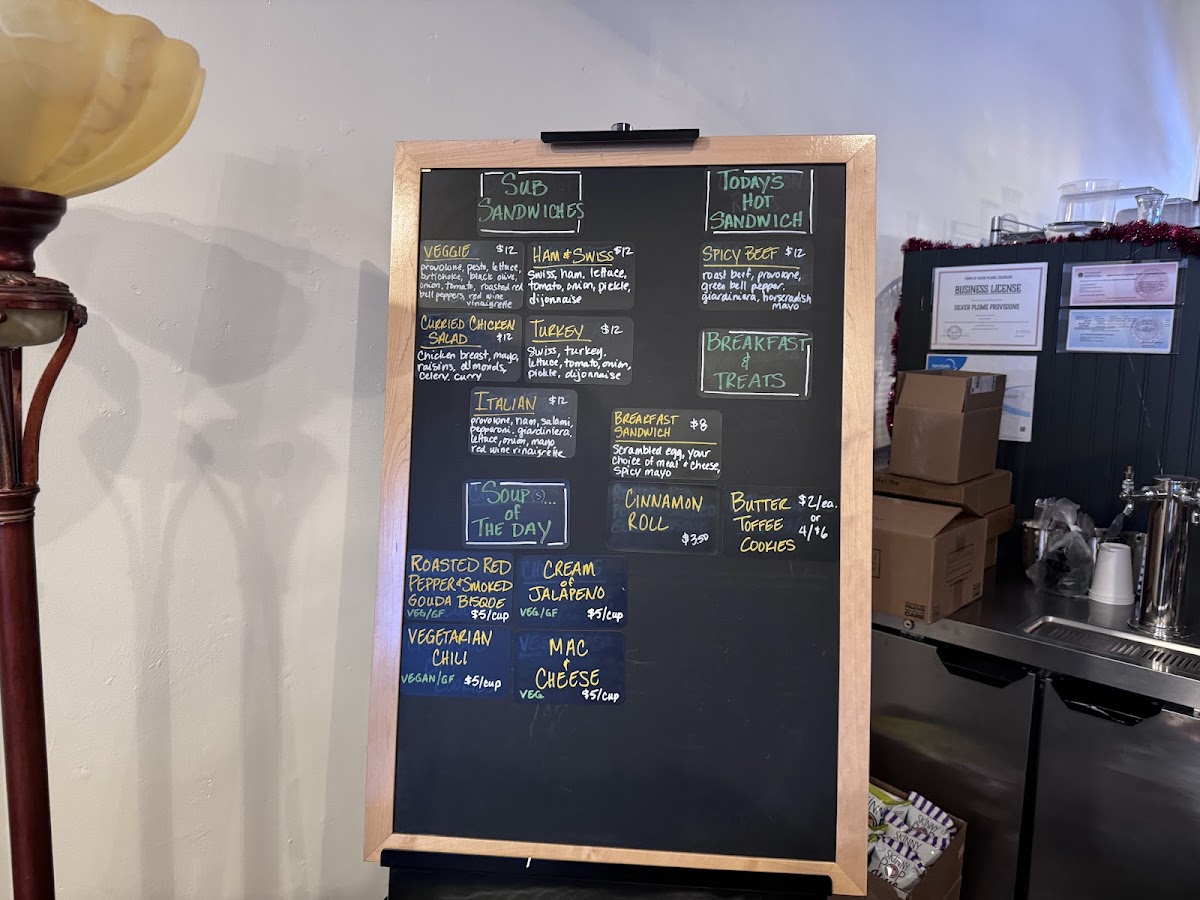 SUB
SANDWICHES
VEGGIE $12
provolone, pesto, lettuce,
artichoke, black olive,
onion, tomato, roasted red
bell peppers, red wine
vinaigrette
HAM & SWISS $12
Swiss, ham, lettuce,
tomato, onion, pickle,
dijonnaise
CURRIED CHICKEN
SALAD $12
Chicken breast, mayo,
raisins, almonds,
celery, curry
TURKEY $12
Swiss, turkey,
lettuce, tomato, onion,
pickle, dijonnaise
ITALIAN $12
provolone, ham, salami,
pepperoni, giardiniera,
lettuce, onion, mayo
red wine vinaigrette
SOUP(S)...
of
THE DAY
ROASTED RED
PEPPER & SMOKED
GOUDA BISQUE
VEG/GF $5/cup
CREAM
of
JALAPENO
VEG/GF $5/cup
VEGETARIAN
CHILI
VEGAN/GF $5/cup
MAC
&
CHEESE
VEG $5/cup
TODAY'S
HOT
SANDWICH
SPICY BEEF $12
roast beef, provolone,
green bell pepper,
giardiniera, horseradish
mayo
BREAKFAST
&
TREATS
BREAKFAST
SANDWICH $8
Scrambled egg, your
choice of meat & cheese,
spicy mayo
CINNAMON
ROLL
$3.50
BUTTER
TOFFEE
COOKIES
$2/ea.
or
4/$6
BUSINESS LICENSE
SILVER PLUME PROVISIONS
SKINNY